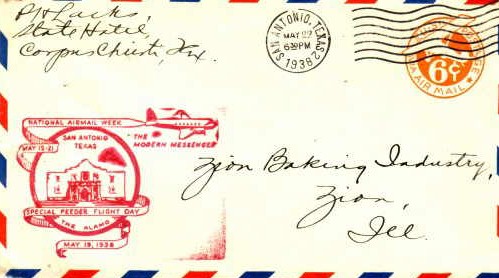 State Hotel,
Corpus Christi, Tex.
SAN ANTONIO, TEXAS
MAY 22
6 30 PM
1938
6¢
VIA AIR MAIL
NATIONAL AIRMAIL WEEK
MAY 15-21
SAN ANTONIO
TEXAS
"THE
MODERN MESSENGER"
SPECIAL FEEDER FLIGHT DAY
THE ALAMO
MAY 19, 1938
Zion Baking Industry,
Zion,
Ill.